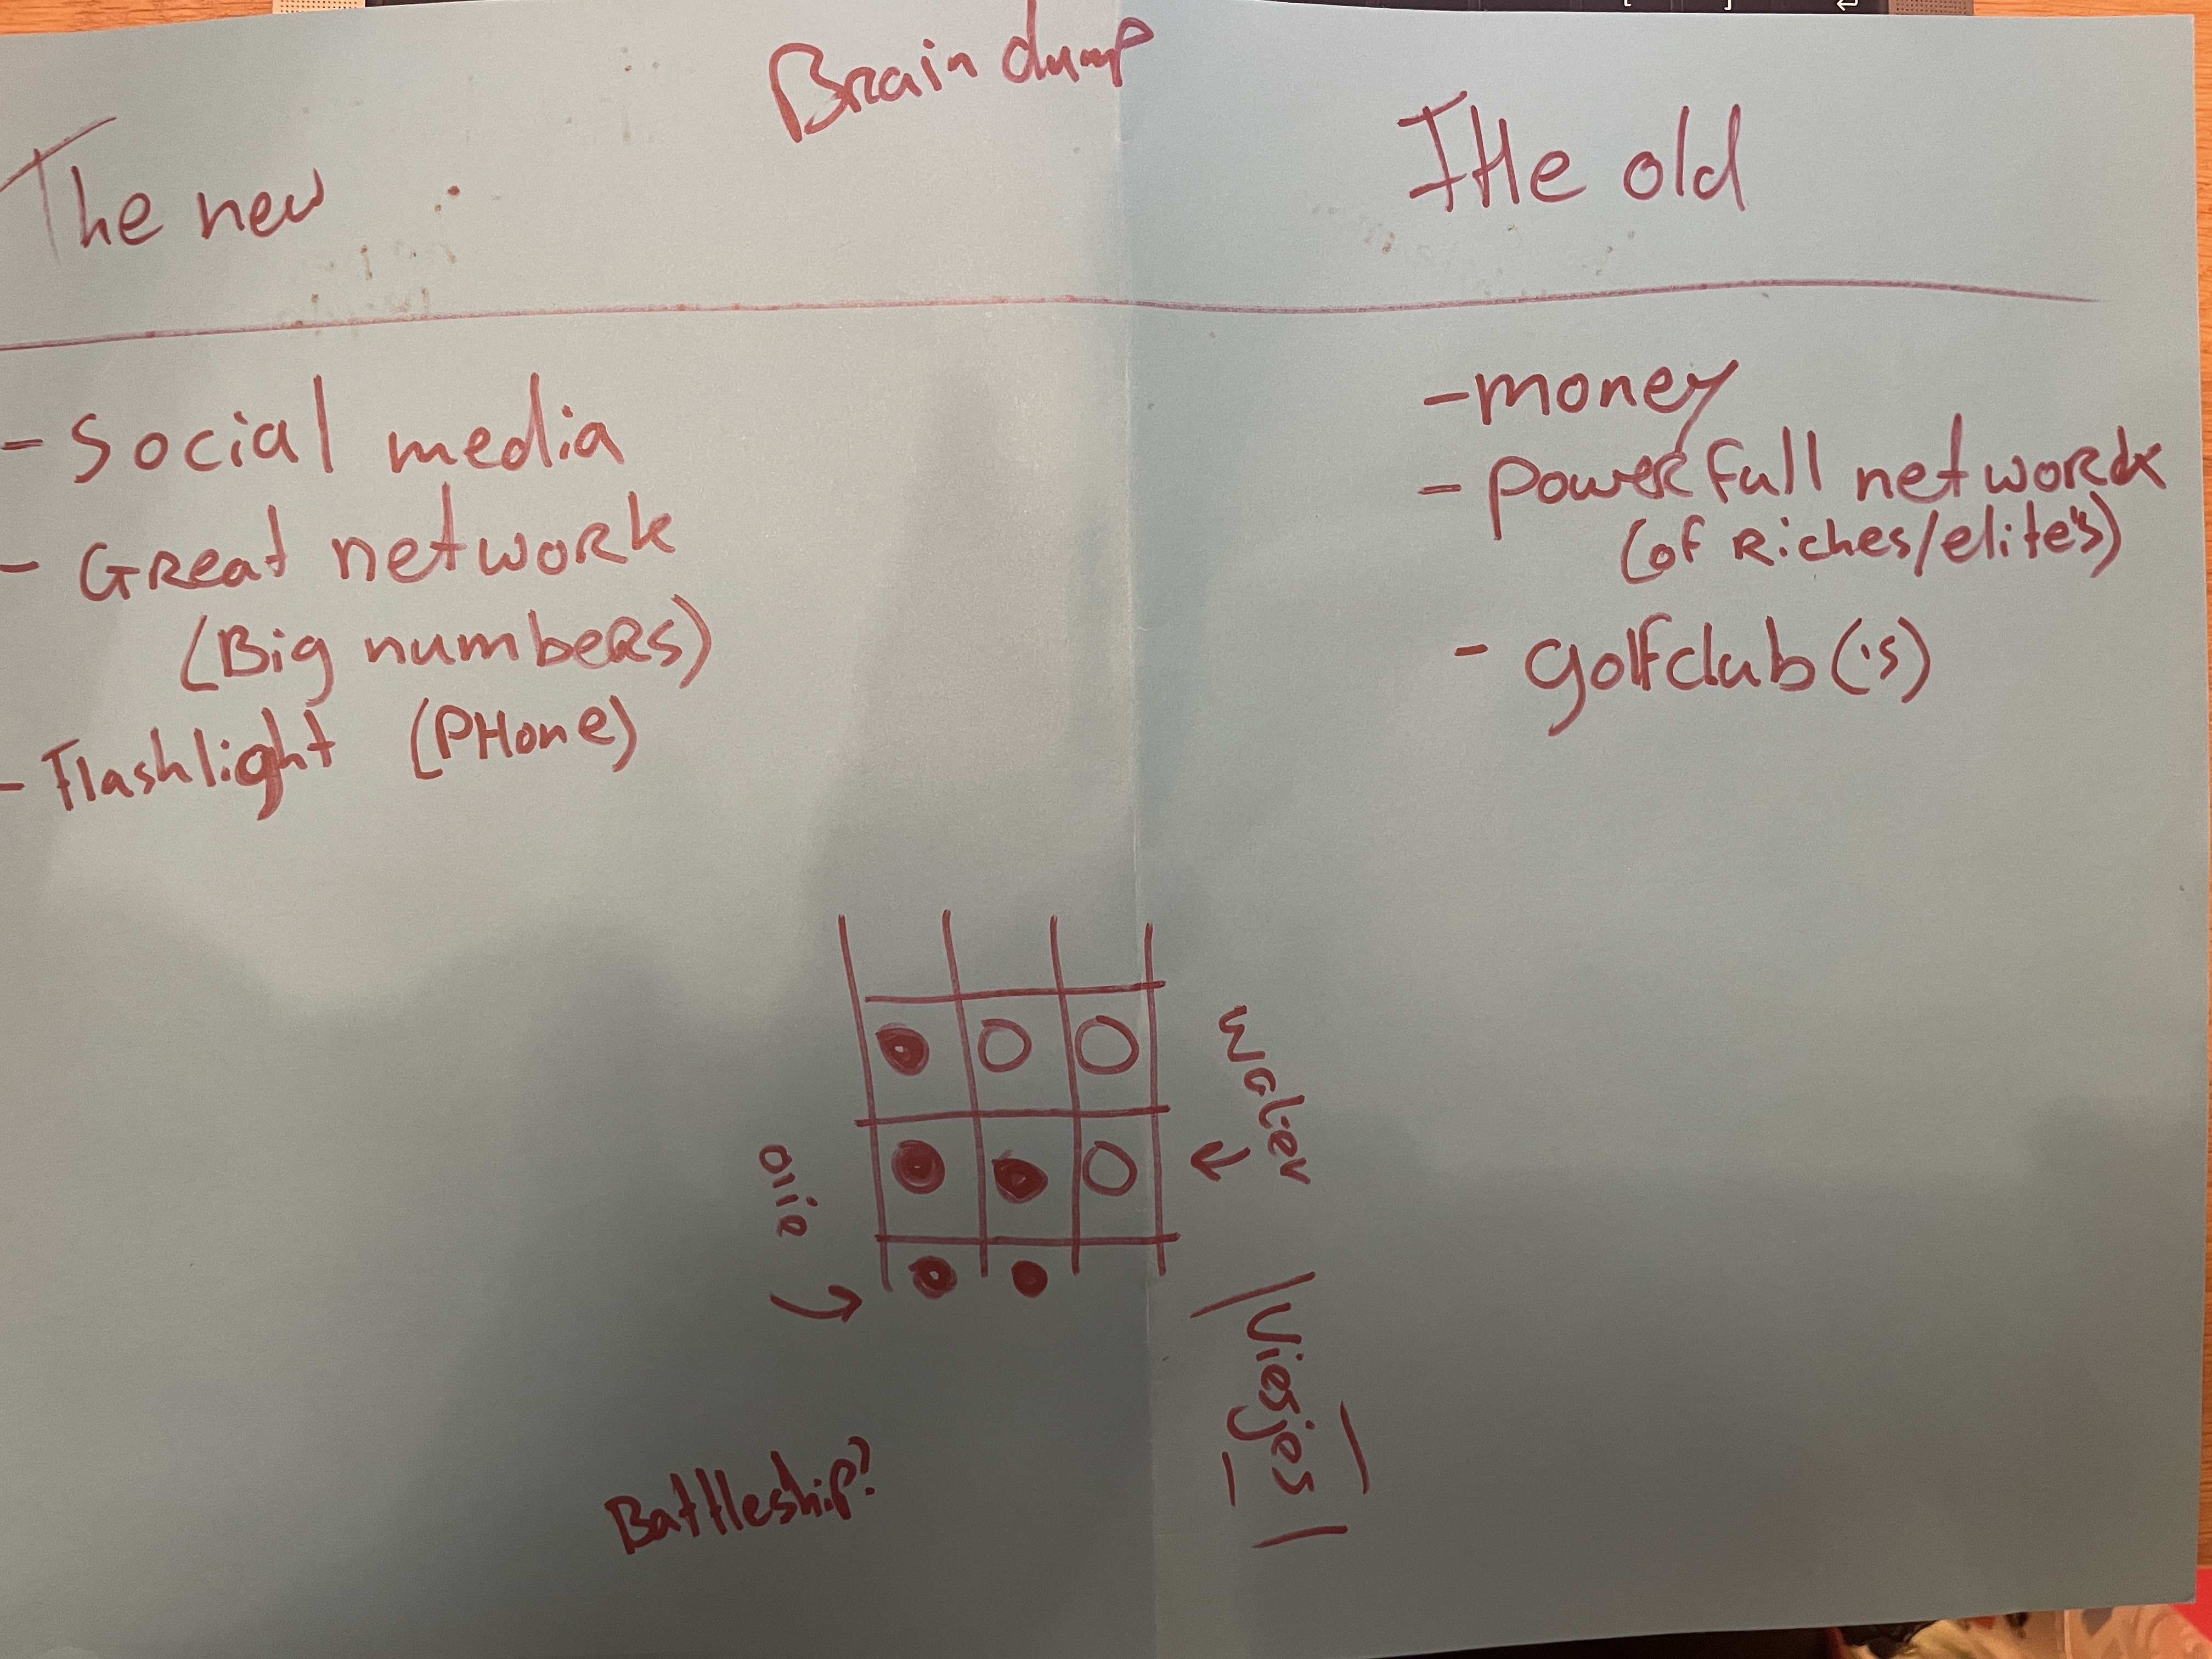 Brain dump
The new
The old
- Social media
- Great network
(Big numbers)
- Flashlight (PHone)
- money
- powerfull network
(of Riches/elite's)
- golfclub('s)
Water
olie
Viesjes
Battleship?